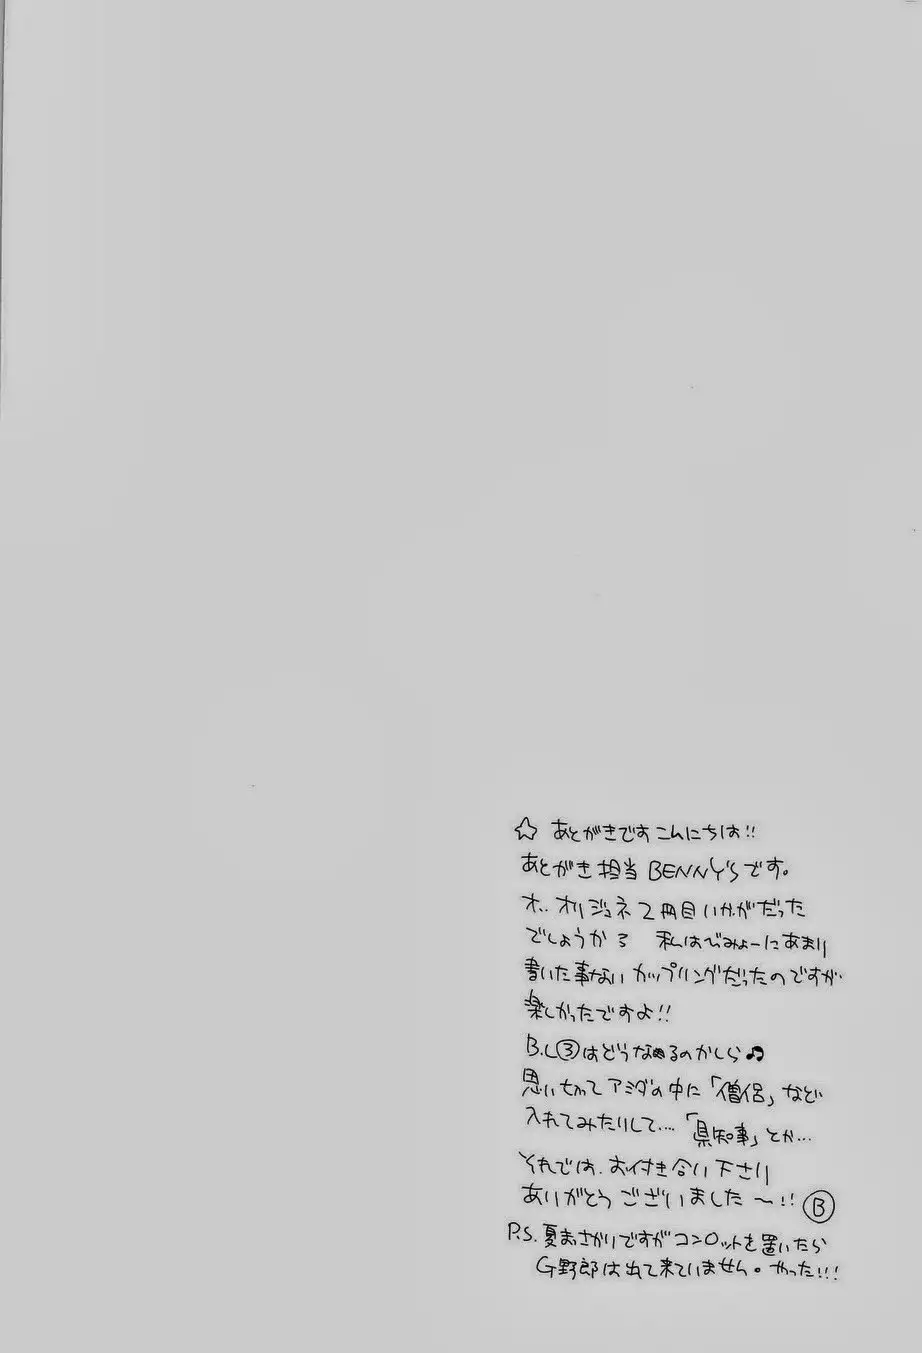 ☆ あとがきです こんにちは!!
あとがき担当 BENNY'Sです。
オ.. オリジュネ 2冊目いかがだった
でしょうか? 私はびみょーにあまり
書いた事ないカップリングだったのですが
楽しかったですよ!!
B.L③はどうなるのかしら♫
思い切ってアミダの中に「僧侶」など
入れてみたりして…. 「県知事」とか…
それでは、お付き合い下さり
ありがとうございました〜!! Ⓑ
P.S. 夏まっさかりですがコンロットを置いたら
G野郎は出て来ていません。やった!!!